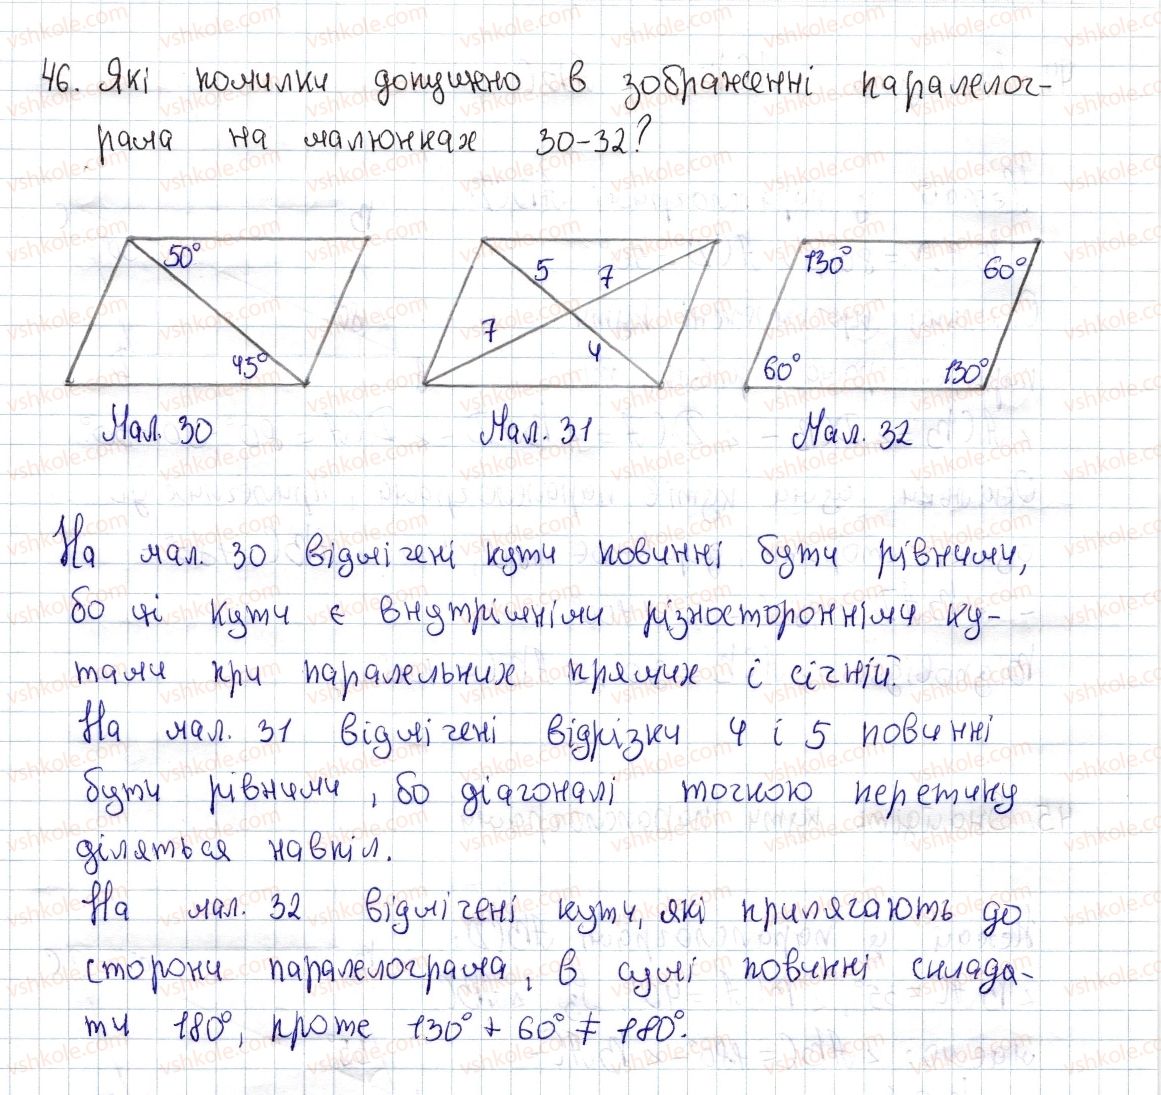 46. Які помилки допущено в зображенні паралелог-
рама на малюнках 30-32?
50°
45°
Мал. 30
5
7
7
4
Мал. 31
130°
60°
60°
130°
Мал. 32
На мал. 30 відмічені кути повинні бути рівними,
бо ці кути є внутрішніми різносторонніми ку-
тами при паралельних прямих і січній.
На мал. 31 відмічені відрізки 4 і 5 повинні
бути рівними, бо діагоналі точкою перетину
діляться навпіл.
На мал. 32 відмічені кути, які прилягають до
сторони паралелограма, в сумі повинні склада-
ти 180°, проте 130° + 60° ≠ 180°.
vshkole.com